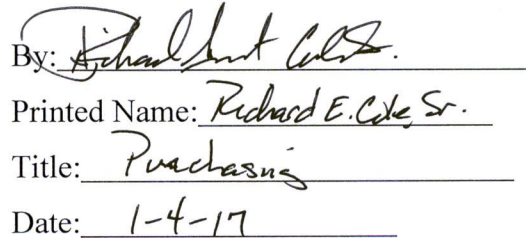 By: Richard
Printed Name: Richard E. Cole, Sr.
Title: Purchasing
Date: 1-4-17